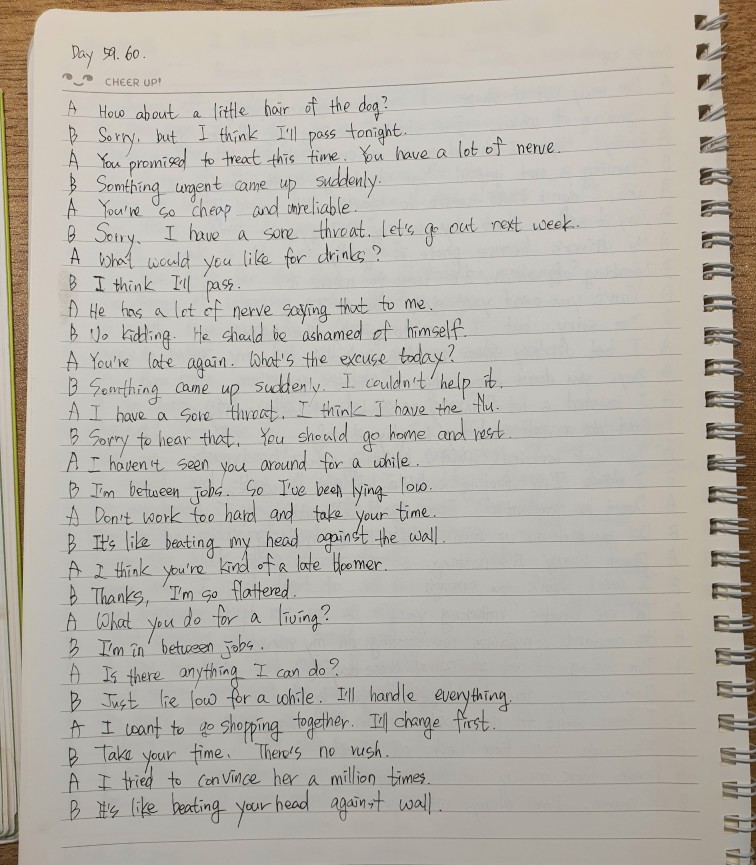 Day 59. 60.
CHEER UP!
A How about a little hair of the dog?
B Sorry, but I think I'll pass tonight.
A You promised to treat this time. You have a lot of nerve.
B Somthing urgent came up suddenly.
A You're so cheap and unreliable.
B Sorry. I have a sore throat. Let's go out next week.
A What would you like for drinks?
B I think I'll pass.
A He has a lot of nerve saying that to me.
B No kidding. He should be ashamed of himself.
A You're late again. What's the excuse today?
B Something came up suddenly. I couldn't help it.
A I have a sore throat. I think I have the flu.
B Sorry to hear that. You should go home and rest.
A I haven't seen you around for a while.
B I'm between jobs. So I've been lying low.
A Don't work too hard and take your time.
B It's like beating my head against the wall.
A I think you're kind of a late bloomer.
B Thanks, I'm so flattered.
A What you do for a living?
B I'm in between jobs.
A Is there anything I can do?
B Just lie low for a while. I'll handle everything.
A I want to go shopping together. I'll change first.
B Take your time. There's no rush.
A I tried to convince her a million times.
B It's like beating your head against wall.